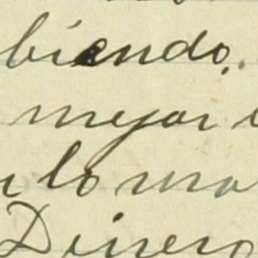 biendo.
mejor
lo ma
Dinero